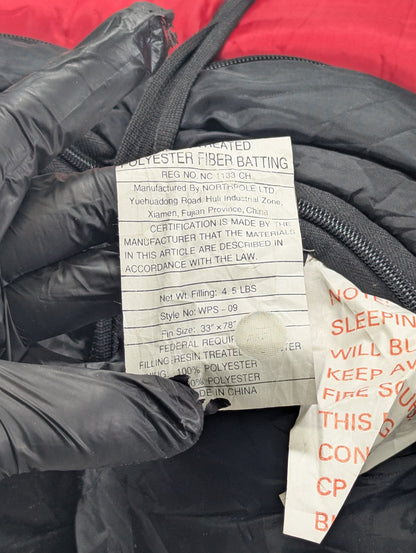 TREATED
POLYESTER FIBER BATTING
REG NO. NC 1133 CH
Manufactured By NORTHPOLE LTD.
Yuehuadong Road, Huli Industrial Zone,
Xiamen, Fujian Province, China
CERTIFICATION IS MADE BY THE
MANUFACTURER THAT THE MATERIALS
IN THIS ARTICLE ARE DESCRIBED IN
ACCORDANCE WITH THE LAW.
Net Wt. Filling: 4.5 LBS
Style No: WPS - 09
Fin Size: 33" x 78"
FEDERAL
FILLING: RESIN TREATED
100% POLYESTER
POLYESTER
MADE IN CHINA
SLEEPIN
WILL BU
KEEP AW
FIRE SOU
THIS
CON
CP
BU